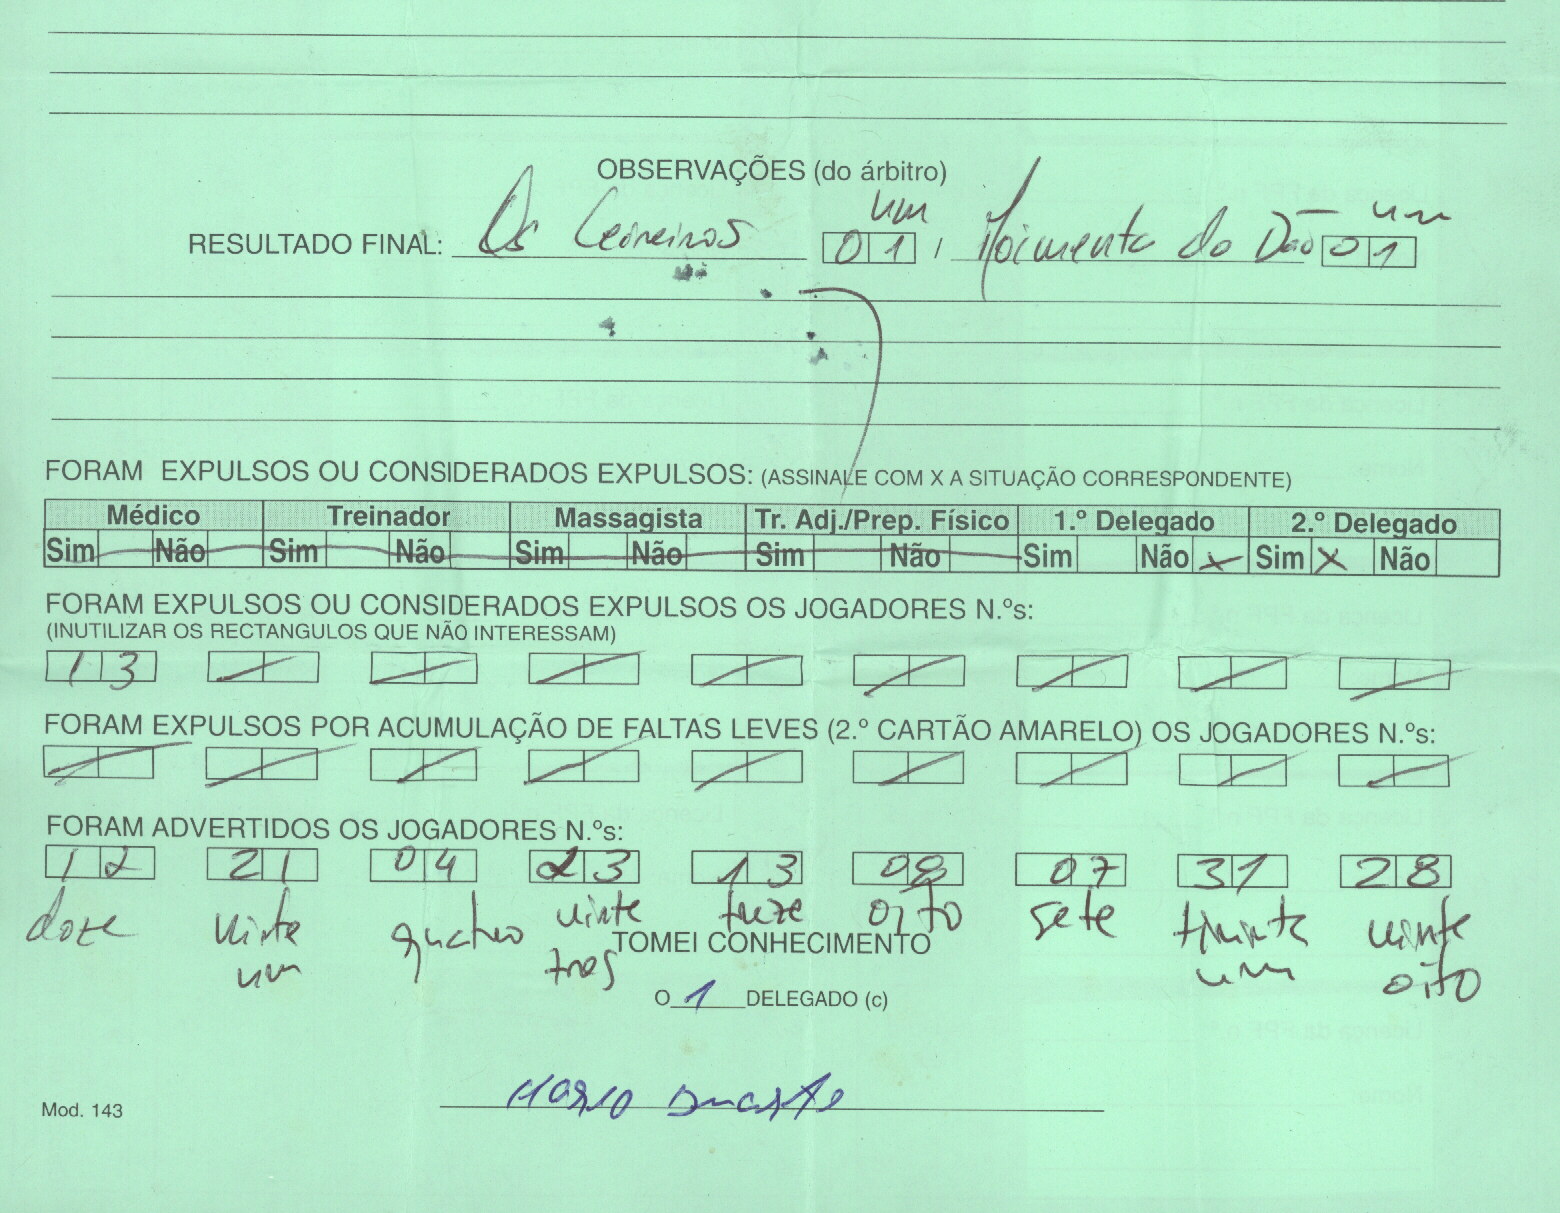 OBSERVAÇÕES (do árbitro)
um um
RESULTADO FINAL: Os Ceireiros 01 / Moimenta do Dão 01
FORAM EXPULSOS OU CONSIDERADOS EXPULSOS: (ASSINALE COM X A SITUAÇÃO CORRESPONDENTE)
Médico Treinador Massagista Tr. Adj./Prep. Físico 1.º Delegado 2.º Delegado
Sim Não Sim Não Sim Não Sim Não Sim Não X Sim X Não
FORAM EXPULSOS OU CONSIDERADOS EXPULSOS OS JOGADORES N.ºs:
(INUTILIZAR OS RECTANGULOS QUE NÃO INTERESSAM)
13
FORAM EXPULSOS POR ACUMULAÇÃO DE FALTAS LEVES (2.º CARTÃO AMARELO) OS JOGADORES N.ºs:
FORAM ADVERTIDOS OS JOGADORES N.ºs:
12 21 04 23 13 08 07 31 28
doze vinte um quatro vinte tres treze oito sete trinta um vinte oito
TOMEI CONHECIMENTO
O 1 DELEGADO (c)
Mario Duarte
Mod. 143